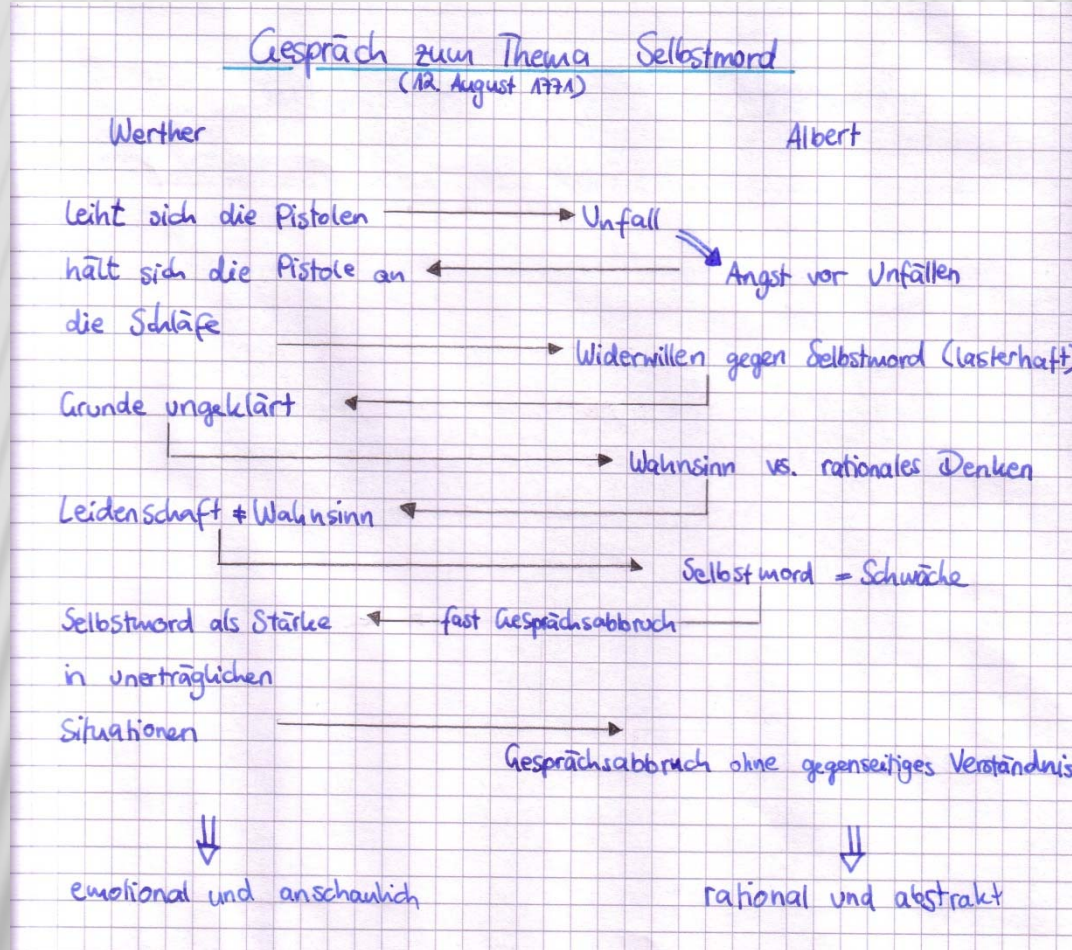 Gespräch zum Thema Selbstmord
(12. August 1771)
Werther Albert
Leiht sich die Pistolen → Unfall
hält sich die Pistole an ← Angst vor Unfällen
die Schläfe
→ Widerwillen gegen Selbstmord (lasterhaft)
Grunde ungeklärt ←
→ Wahnsinn vs. rationales Denken
Leidenschaft ≠ Wahnsinn ←
→ Selbstmord = Schwäche
Selbstmord als Stärke ← fast Gesprächsabbruch
in unerträglichen
Situationen →
Gesprächsabbruch ohne gegenseitiges Verständnis
⇓ ⇓
emotional und anschaulich rational und abstrakt